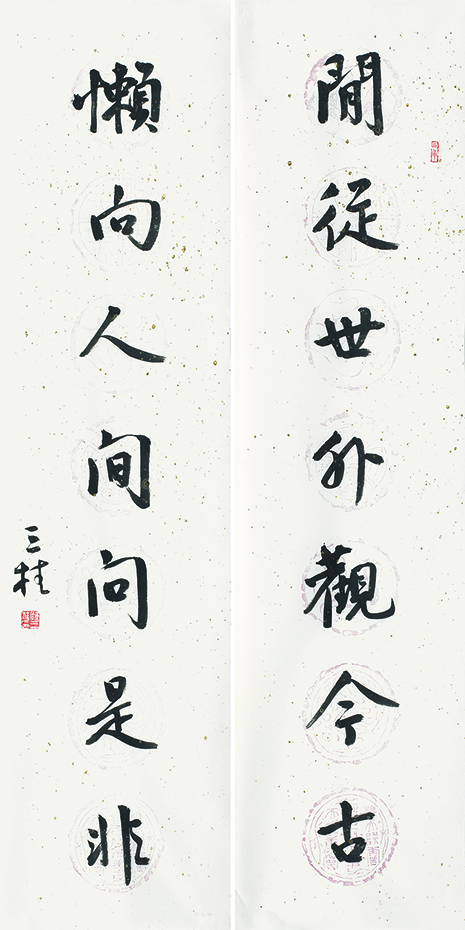 閒從世外觀今古
懶向人间问是非
三桂